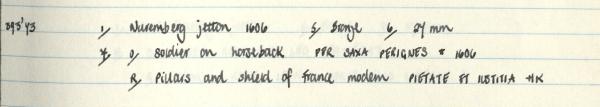 393'43 1, Nuremberg jetton 1606 5, Bronze 6, 27 mm
7, O, soldier on horseback PER SAXA PER IGNES * 1606
R, Pillars and shield of France modern PIETATE ET IUSTITIA HK